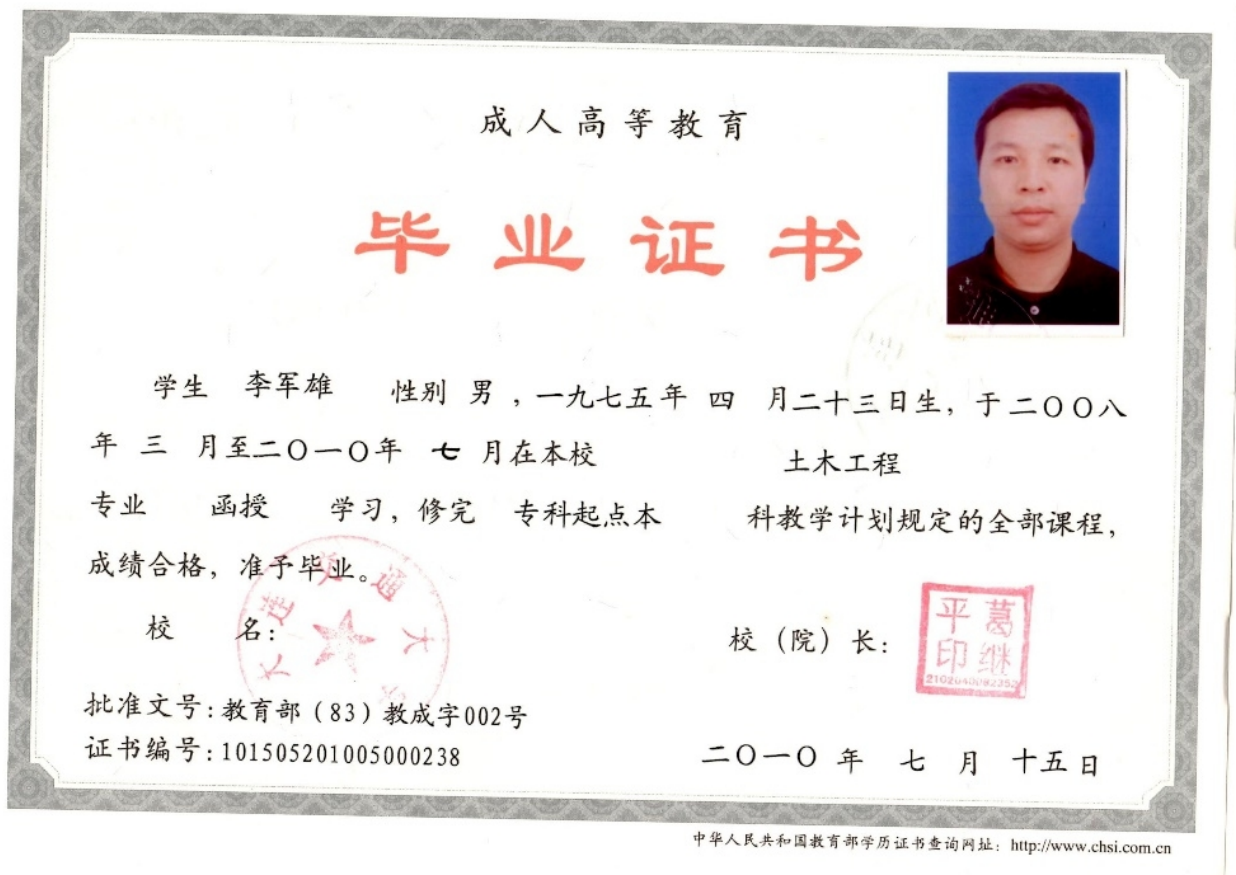 成人高等教育
毕业证书
学生 李军雄 性别 男 ,一九七五年 四 月二十三日生, 于二〇〇八
年 三 月至二〇一〇年 七 月在本校 土木工程
专业 函授 学习, 修完 专科起点本 科教学计划规定的全部课程,
成绩合格, 准予毕业。
校 名:
大连交通大学
校 (院) 长:
葛继平印
2102040092352
批准文号: 教育部 (83) 教成字002号
证书编号: 101505201005000238
二〇一〇 年 七 月 十五 日
中华人民共和国教育部学历证书查询网址: http://www.chsi.com.cn